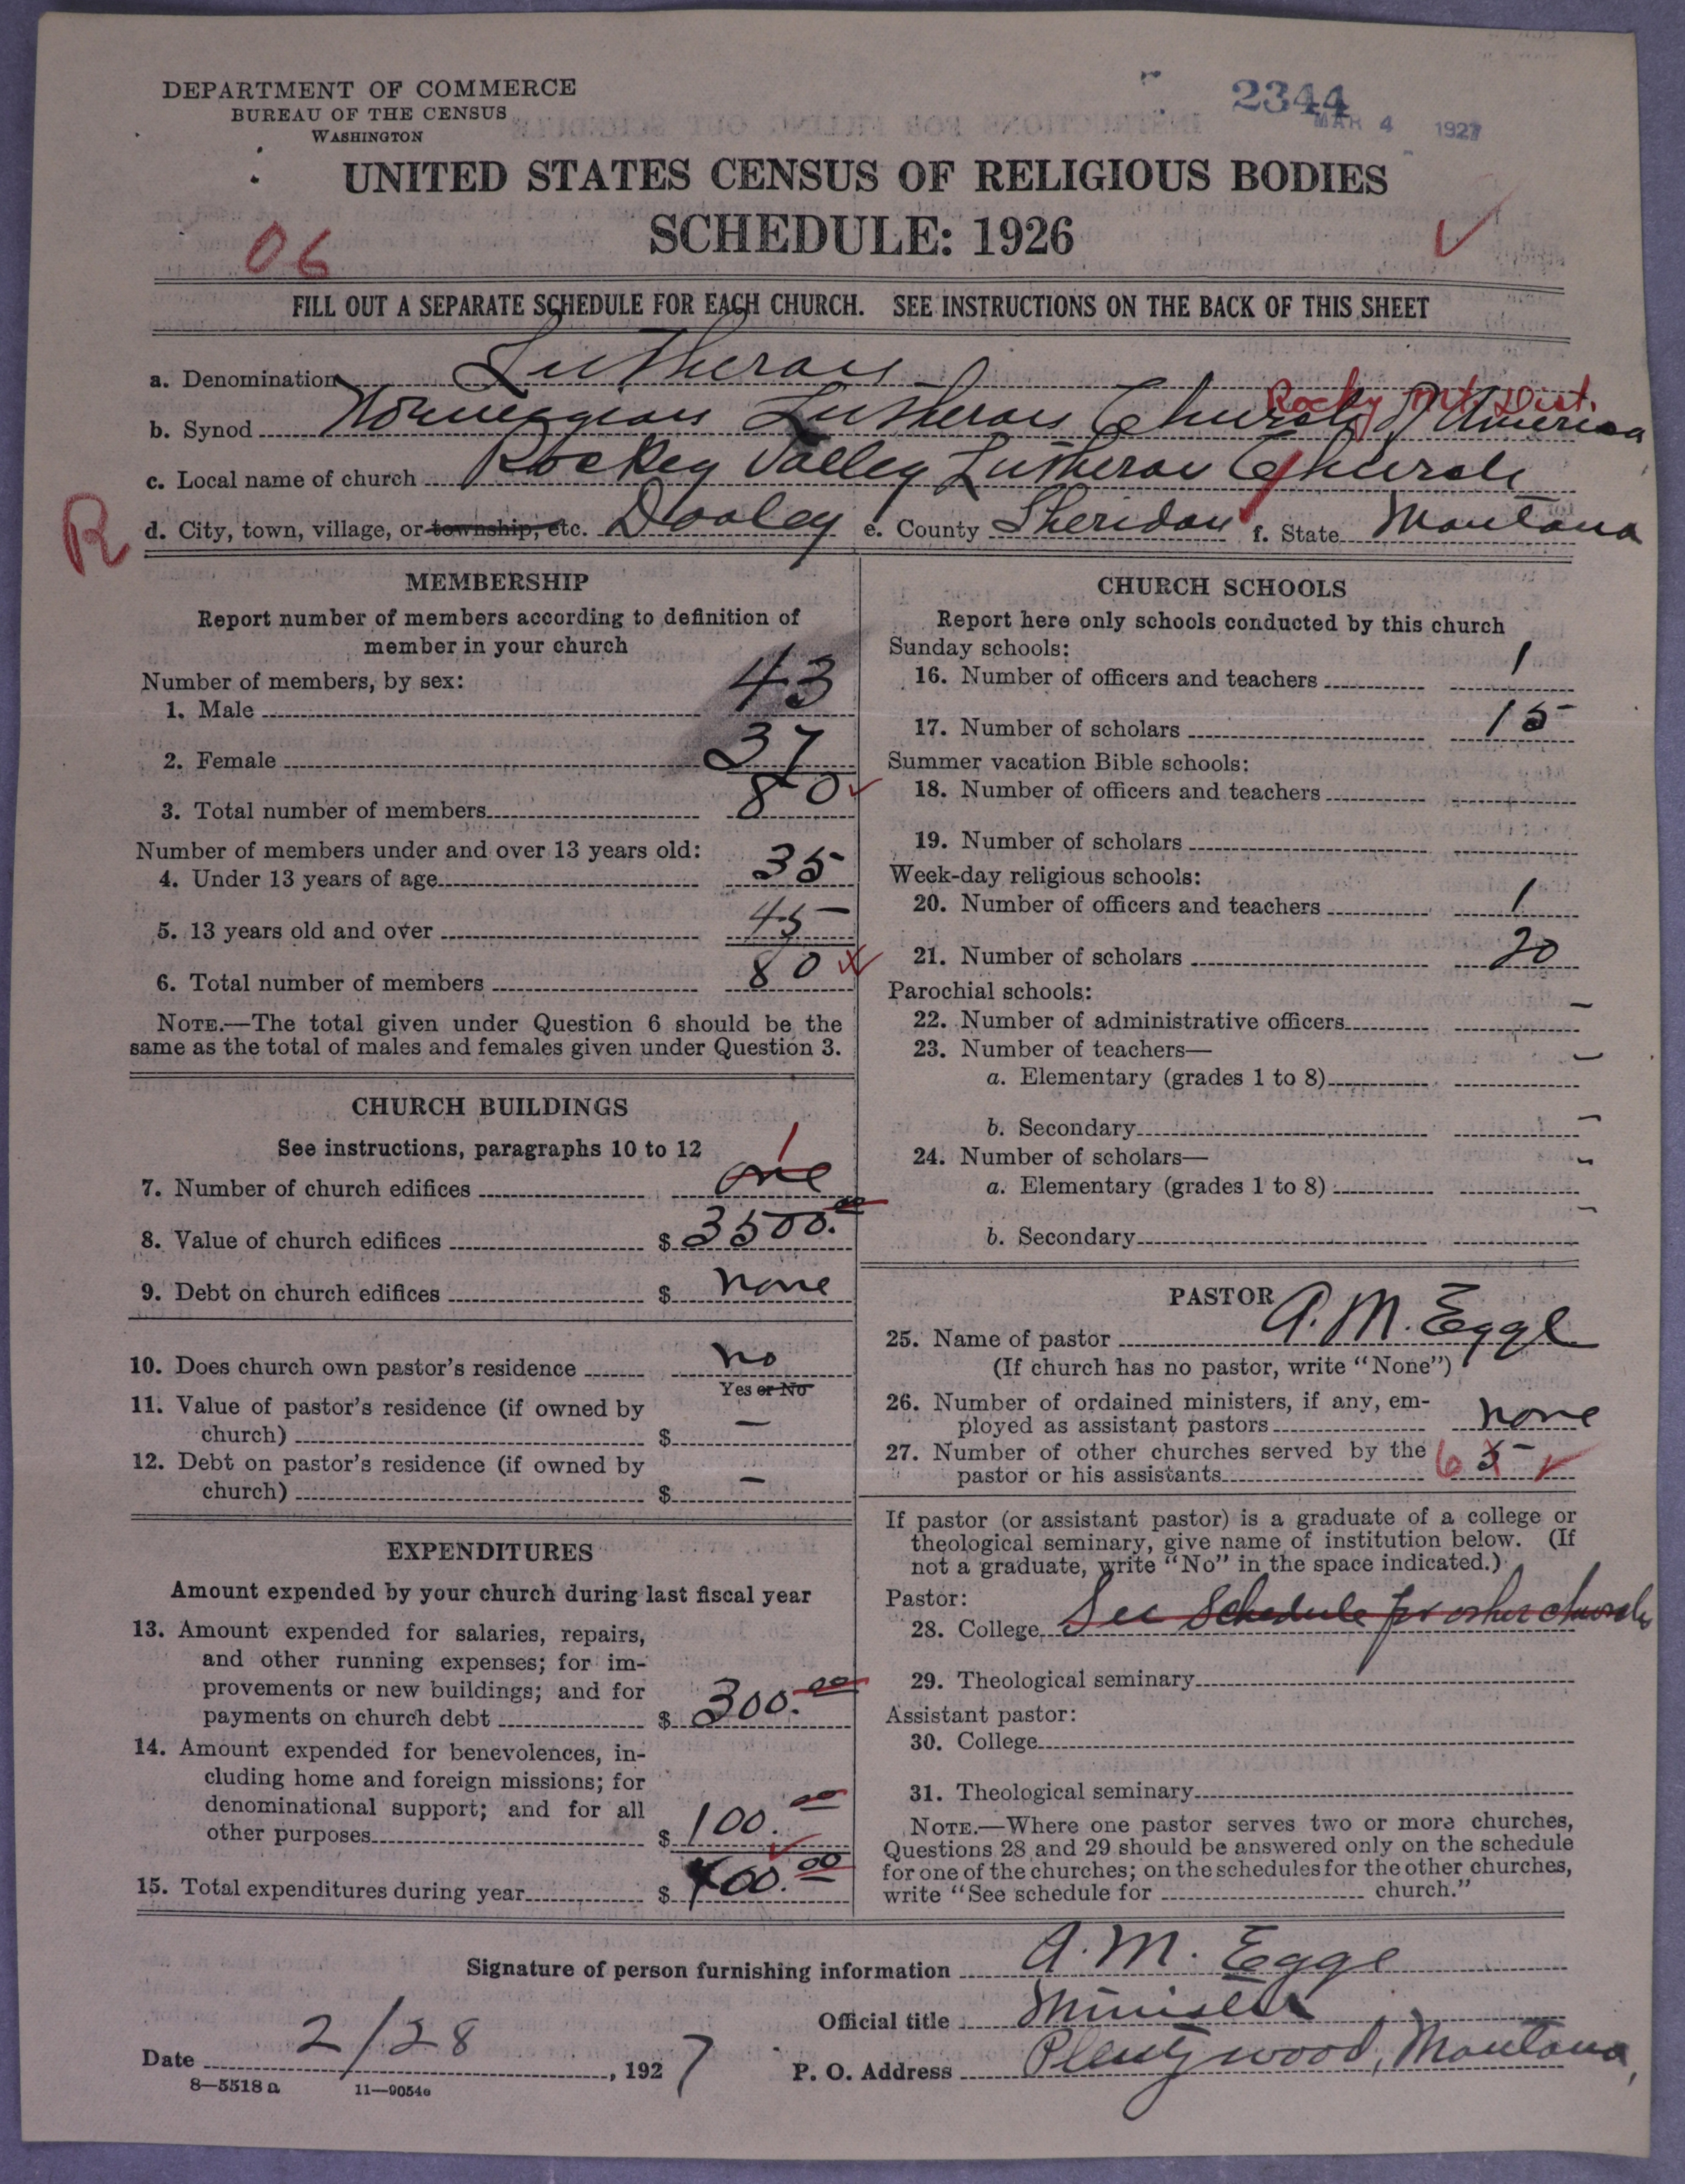 DEPARTMENT OF COMMERCE
BUREAU OF THE CENSUS
WASHINGTON
2344
MAR 4 1927
UNITED STATES CENSUS OF RELIGIOUS BODIES
SCHEDULE: 1926
06
FILL OUT A SEPARATE SCHEDULE FOR EACH CHURCH. SEE INSTRUCTIONS ON THE BACK OF THIS SHEET
a. Denomination Lutheran
Rocky Mt. Dist.
b. Synod Norwegian Lutheran Church of America
c. Local name of church Rockey Valley Lutheran Church
R
d. City, town, village, or township, etc. Dooley e. County Sheridan f. State Montana
MEMBERSHIP
Report number of members according to definition of
member in your church
Number of members, by sex:
1. Male 43
2. Female 37
3. Total number of members 80
Number of members under and over 13 years old:
4. Under 13 years of age 35
5. 13 years old and over 45
6. Total number of members 80
NOTE.—The total given under Question 6 should be the
same as the total of males and females given under Question 3.
CHURCH BUILDINGS
See instructions, paragraphs 10 to 12
1
7. Number of church edifices one
8. Value of church edifices $ 3500.00
9. Debt on church edifices $ none
10. Does church own pastor's residence no
Yes or No
11. Value of pastor's residence (if owned by
church) $ —
12. Debt on pastor's residence (if owned by
church) $ —
EXPENDITURES
Amount expended by your church during last fiscal year
13. Amount expended for salaries, repairs,
and other running expenses; for im-
provements or new buildings; and for
payments on church debt $ 300.00
14. Amount expended for benevolences, in-
cluding home and foreign missions; for
denominational support; and for all
other purposes $ 100.00
15. Total expenditures during year $ 400.00
CHURCH SCHOOLS
Report here only schools conducted by this church
Sunday schools:
16. Number of officers and teachers 1
17. Number of scholars 15
Summer vacation Bible schools:
18. Number of officers and teachers
19. Number of scholars
Week-day religious schools:
20. Number of officers and teachers 1
21. Number of scholars 20
Parochial schools:
22. Number of administrative officers —
23. Number of teachers—
a. Elementary (grades 1 to 8) —
b. Secondary —
24. Number of scholars—
a. Elementary (grades 1 to 8) —
b. Secondary —
PASTOR
25. Name of pastor A. M. Egge
(If church has no pastor, write "None")
26. Number of ordained ministers, if any, em-
ployed as assistant pastors none
27. Number of other churches served by the
pastor or his assistants 6 5
If pastor (or assistant pastor) is a graduate of a college or
theological seminary, give name of institution below. (If
not a graduate, write "No" in the space indicated.)
Pastor:
28. College See Schedule for other church
29. Theological seminary
Assistant pastor:
30. College
31. Theological seminary
NOTE.—Where one pastor serves two or more churches,
Questions 28 and 29 should be answered only on the schedule
for one of the churches; on the schedules for the other churches,
write "See schedule for church."
Signature of person furnishing information A. M. Egge
Official title Minister
Date 2/28, 1927 P. O. Address Plentywood, Montana,
8—5518 a 11—9054a